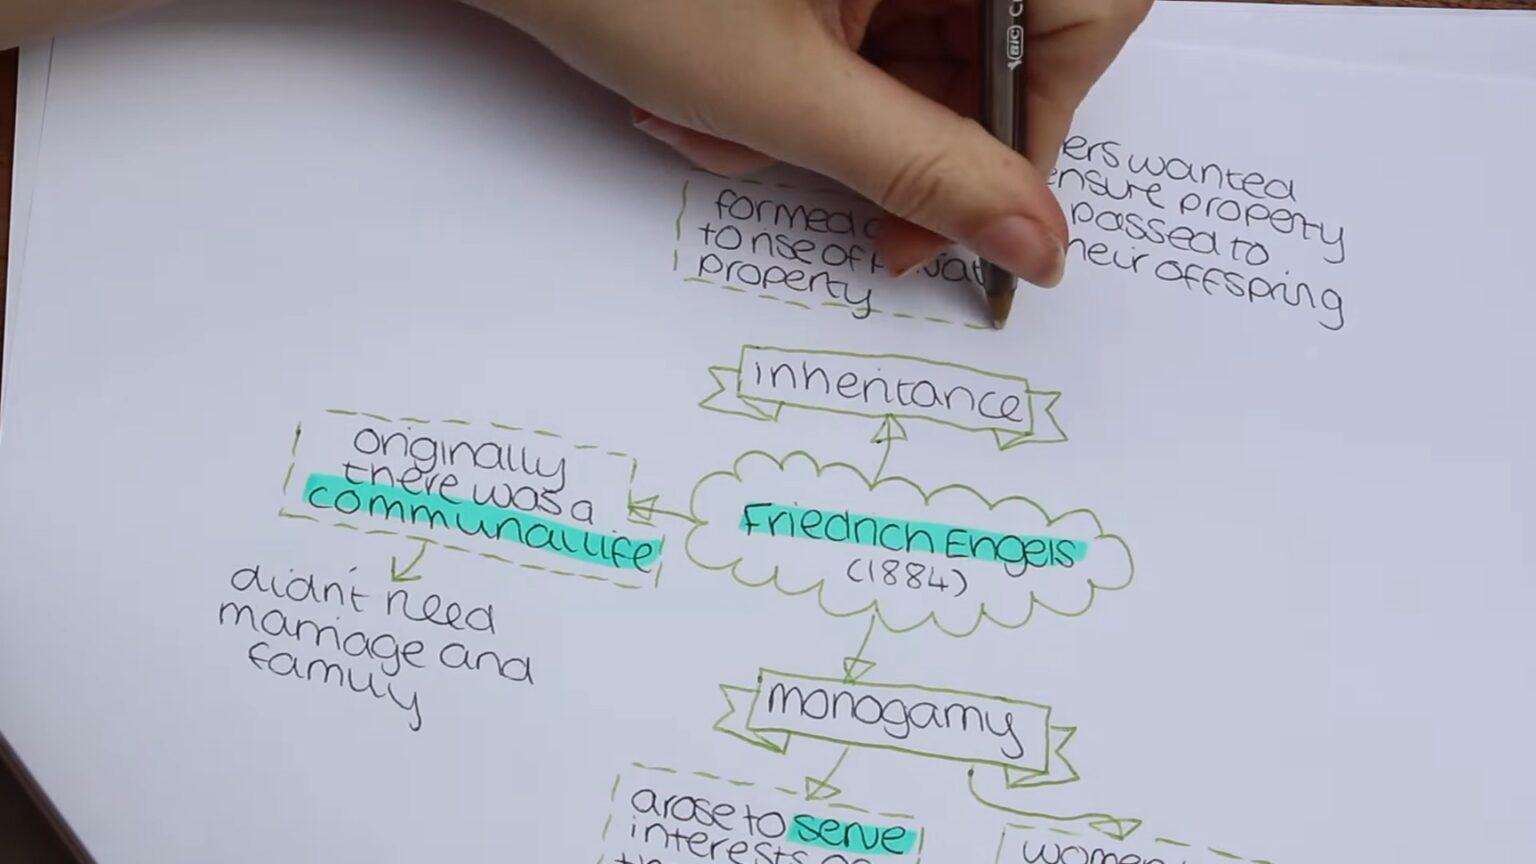 BIC
ers wanted
ensure property
passed to
heir offspring
formed
to rise of
property
inheritance
originally
there was a
communal life
didn't need
marriage and
family
Friedrich Engels
(1884)
monogamy
arose to serve
interests
women